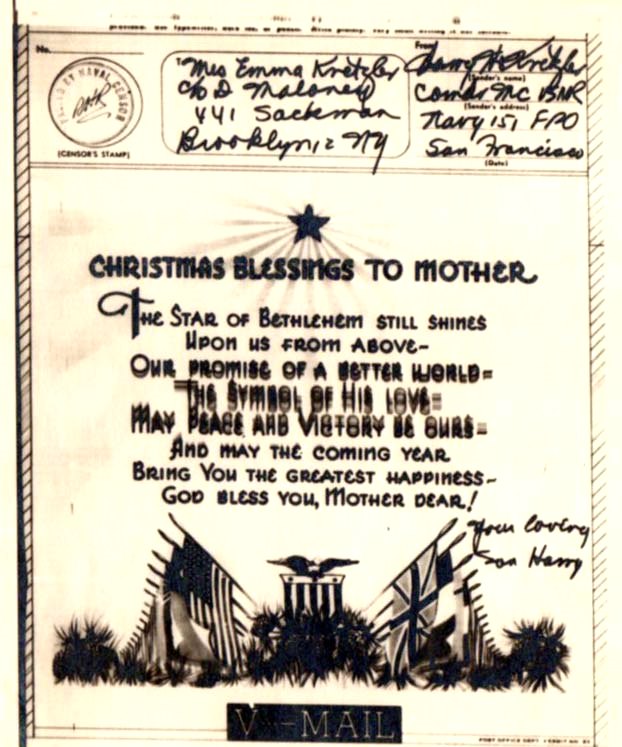 No.
PASSED BY NAVAL CENSOR
(CENSOR'S STAMP)
To Mrs Emma Kretzler
c/o D Maloney
441 Sackman
Brooklyn, 12 NY
From
Harry Kretzler
(Sender's name)
(Sender's address)
Navy 151 FPO
San Francisco
(Date)
CHRISTMAS BLESSINGS TO MOTHER
THE STAR OF BETHLEHEM STILL SHINES
UPON US FROM ABOVE-
OUR PROMISE OF A BETTER WORLD-
THE SYMBOL OF HIS LOVE-
MAY PEACE AND VICTORY BE OURS-
AND MAY THE COMING YEAR
BRING YOU THE GREATEST HAPPINESS-
GOD BLESS YOU, MOTHER DEAR!
Your loving
Son Harry
V···-MAIL